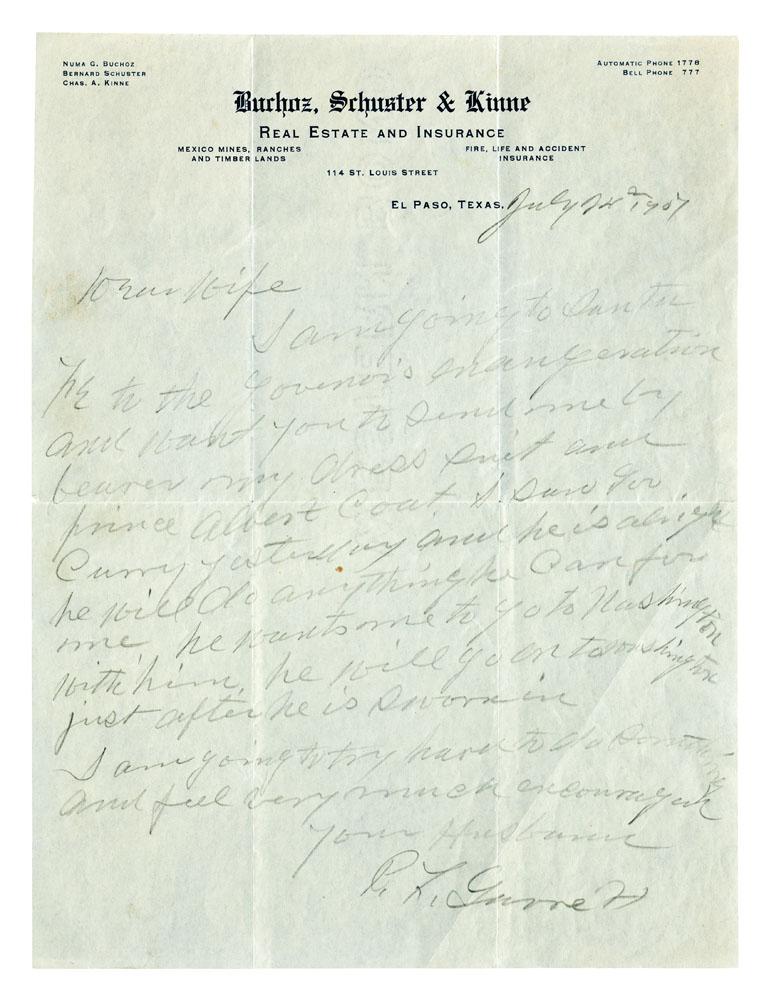 NUMA G. BUCHOZ
BERNARD SCHUSTER
CHAS. A. KINNE
AUTOMATIC PHONE 1778
BELL PHONE 777
Buchoz, Schuster & Kinne
REAL ESTATE AND INSURANCE
MEXICO MINES, RANCHES
AND TIMBER LANDS
FIRE, LIFE AND ACCIDENT
INSURANCE
114 ST. LOUIS STREET
EL PASO, TEXAS, July 1907
Dear Wife
I am going to Santa
Fe to the Govenor's
and want you to send me by
bearer my dress suit and
prince Albert Coat I saw Gov
Curry yesterday and he is
he will do anything he Can for
me, he wants me to go to Washington
with him, he will go on to Washington
just after he is sworn in
I am going to try hard to do something
and feel very much
your Husband
P. F. Garrett